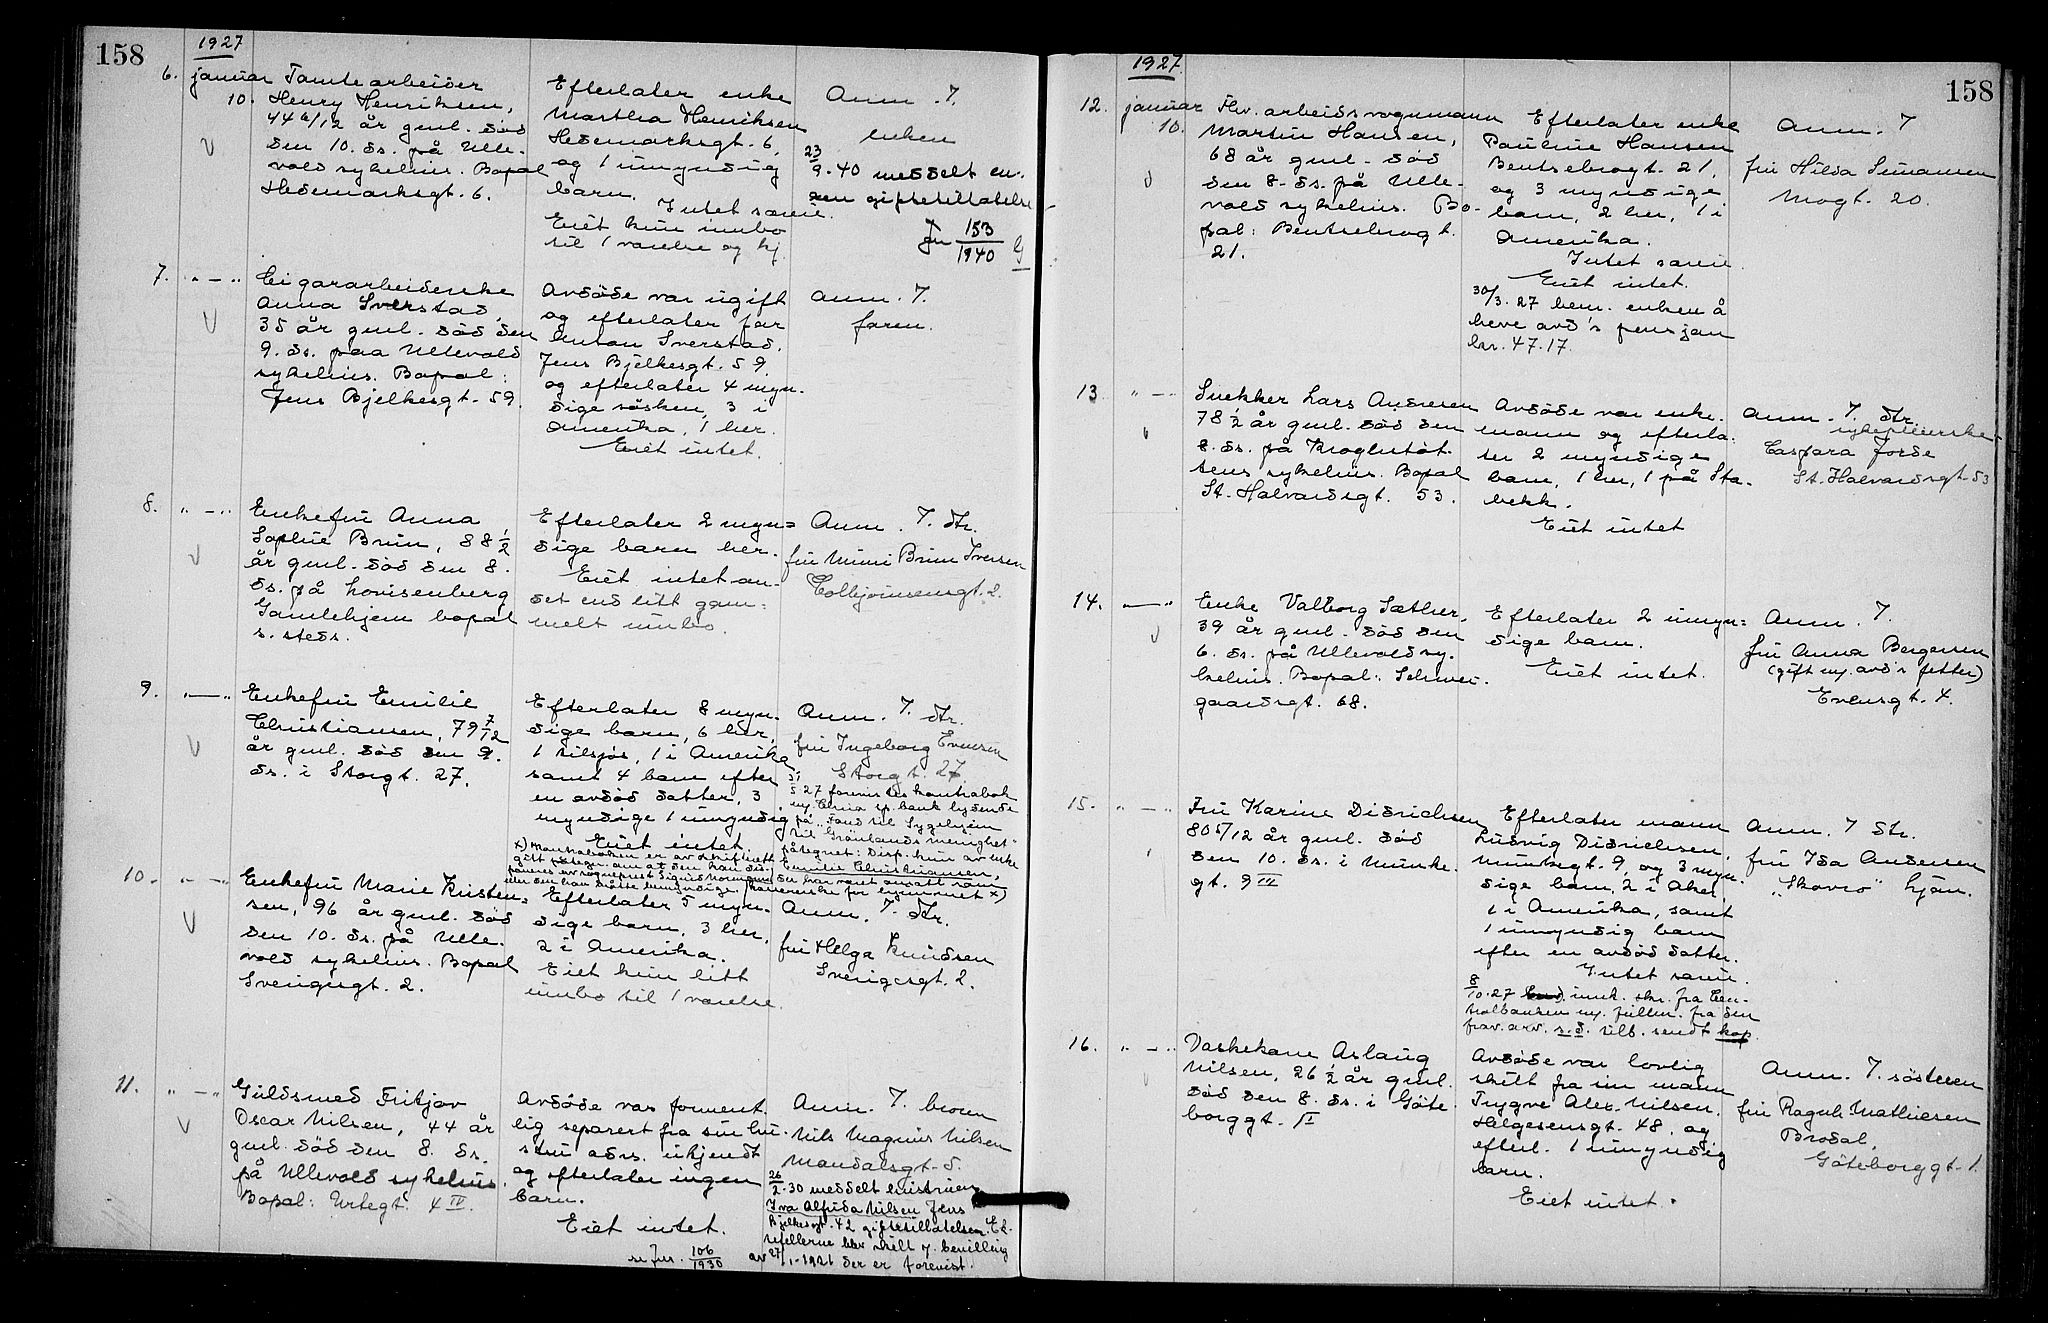 158
1927
6. januar Tomtearbeider
10. Henry Henriksen,
44 6/12 år gml. död
den 10. ds. på Ulle-
vold sykehus. Bopal
Hedemarksgt. 6.
Efterlater enke
Martha Henriksen
Hedemarksgt. 6,
og 1 umyndig
barn.
Intet særeie.
Eiet kun innbo
til 1 værelse og kj.
Anm. 7.
enken
23/9.40 meddelt en-
ken giftetillatelse
Jnr 153/1940 G
7. " — " Cigararbeiderske
Anna Sverstad,
35 år gml. död den
9. ds. paa Ullevold
sykehus. Bopal:
Jens Bjelkesgt. 59.
Avdöde var ugift
og efterlater far
Anton Sverstad,
Jens Bjelkesgt. 59.
og efterlater 4 myn-
dige søsken, 3 i
Amerika, 1 her.
Eiet intet.
Anm. 7.
faren.
8. " — " Enkefru Anna
Sophie Bruun, 88 1/2
år gml. död den 8.
ds. på Lovisenberg
Gamlehjem bopal
s. steds.
Efterlater 2 myn=
dige barn her.
Eiet intet an-
det end litt gam=
melt innbo.
Anm. 7. dtr.
fru Mimi Bruun Iversen
Colbjörnsensgt. 2.
9. " — " Enkefru Emilie
Christiansen, 79 7/12
år gml. död den 9.
ds. i Storgt. 27.
Efterlater 8 myn-
dige barn, 6 her,
1 tilsjös, 1 i Amerika
samt 4 barn efter
en avdöd datter, 3
myndige 1 umyndig
Eiet intet.
Anm. 7. dtr.
fru Ingeborg Evensen
Storgt. 27.
5 27 forevistes kontrabok
m. Chria sp. bank lydende
på "Fond til Sygehjem
til Grönlands menighet"
påtegnet: Disp. kun av enke
Emilie Christiansen,
10. " — " Enkefru Marie Kristen=
sen, 96 år gml. död
den 10. ds. på Ulle-
vold sykehus. Bopal
Sverigesgt. 2.
Efterlater 5 myn-
dige barn, 3 her,
2 i Amerika.
Eiet kun litt
innbo til 1 værelse.
Anm. 7. dtr.
fru Helga Knudsen
Sverigesgt. 2.
11. " — " Guldsmed Fritjov
Oscar Nilsen, 44 år
gml. död den 8. ds.
på Ullevold sykehus.
Bopal: Urtegt. 4 IV.
Avdöde var forment-
lig separert fra sin hu-
stru adrs. ukjendt
og efterlater ingen
barn.
Eiet intet.
se Jnr. 106/1930
Anm. 7. broren
Nils Magnus Nilsen
Mandalsgt. 5.
26/2.30 meddelt hustruen
Iva Alfrida Nilsen Jens
Bjelkesgt. 42 giftetillatelsen. Ek-
tefellerne blev skilt v. bevilling
av 27/1-1921 der er forevist.
158
1927.
12. januar Fhv. arbeidsvognmann
10. Martin Hansen,
68 år gml. död
den 8. ds. på Ulle-
vold sykehus. Bo-
pal: Bentsebrogt.
21.
Efterlater enke
Pauline Hansen
Bentsebrogt. 21,
og 3 myndige
barn, 2 her, 1 i
Amerika.
Intet særeie.
Eiet intet.
30/3.27 bem. enken å
heve avd's pensjon
kr. 47.17.
Anm. 7
fru Hilda Simensen
Mogt. 20.
13 " — " Snekker Lars Andresen
78 1/2 år gml. död den
8. ds. på Krogstöt-
tens sykehus. Bopal
St. Halvardsgt. 53.
Avdöde var enke-
mann og efterla-
ter 2 myndige
barn, 1 her, 1 på Sta-
bekk.
Eiet intet
Anm. 7. dtr.
sykepleierske
Caspara Jorde
St. Halvardsgt. 53
14. — " Enke Valborg Sæther,
39 år gml. död den
6. ds. på Ullevold sy-
kehus. Bopal: Schwei-
gaardsgt. 68.
Efterlater 2 umyn=
dige barn.
Eiet intet.
Anm. 7.
fru Anna Bergersen
(gift m. avd's fetter)
Evensgt. 4.
15. " — " Fru Karine Didrichsen
80 5/12 år gml. död
den 10. ds. i Munke-
gt. 9 III
Efterlater mann
Ludvig Didrichsen,
Munkegt. 9, og 3 myn-
dige barn, 2 i Aker,
1 i Amerika, samt
1 umyndig barn
efter en avdöd datter.
Intet særeie.
8/10.27 innk. skr. fra Cen-
tralbanken m. fullm. fra den
frav. arv. s.d. tilb. sendt kop.
Anm. 7 dtr.
fru Ida Andersen
"Skovro" Ljan.
16. " — " Vaskekone Aslaug
Nilsen, 26 1/2 år gml.
död den 8. ds. i Göte-
borggt. 1 II
Avdöde var lovlig
skilt fra sin mann
Trygve Alex. Nilsen,
Helgesensgt. 48, og
efterl. 1 umyndig
barn.
Eiet intet.
Anm. 7. søsteren
fru Ragnh. Mathiesen
Brodal,
Göteborggt. 1.